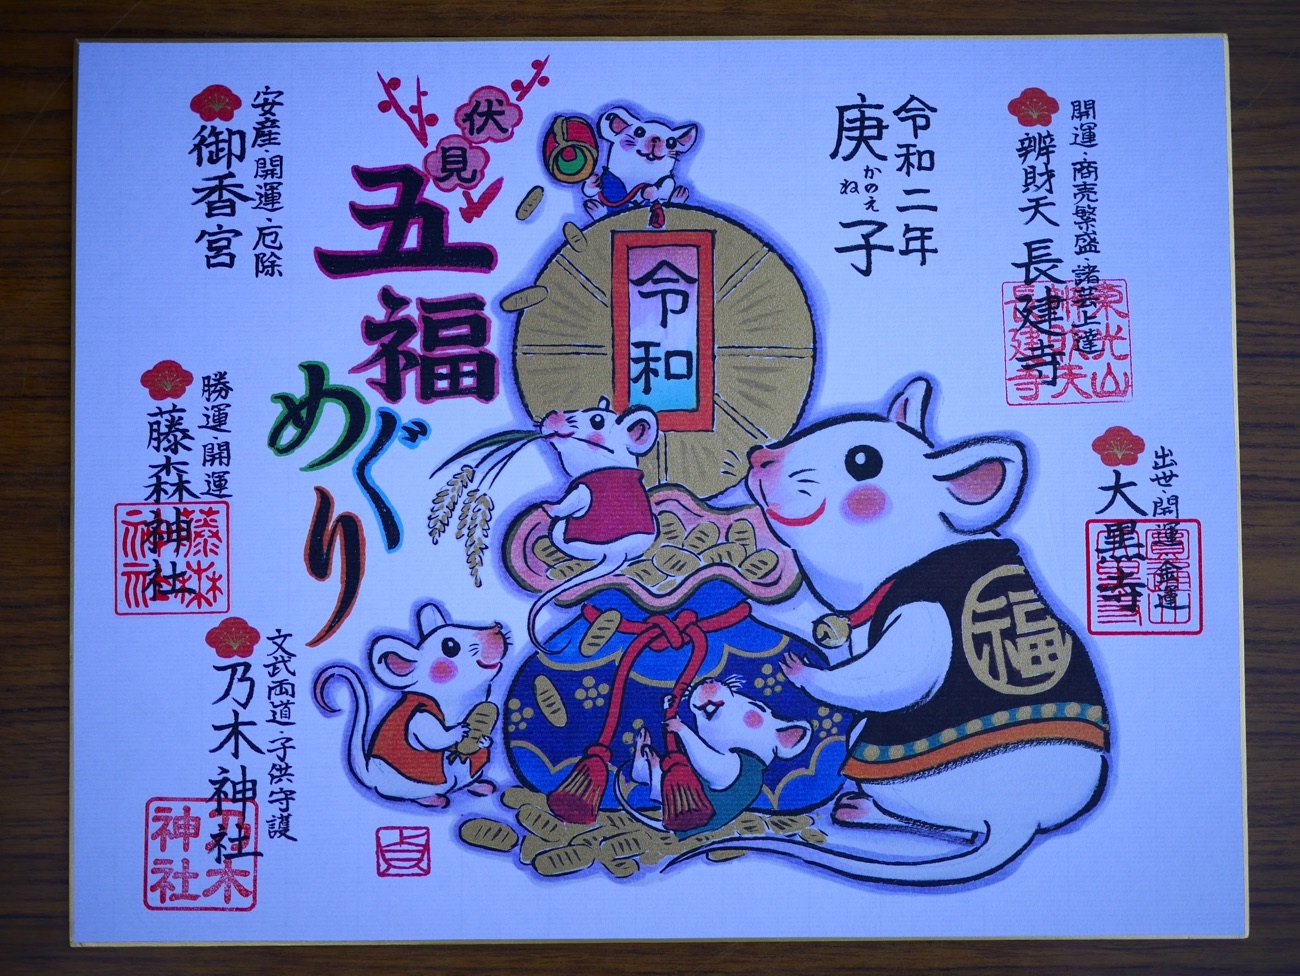 開運・商売繁盛・諸芸上達
辨財天 長建寺
出世・開運・金運
大黒寺
令和二年
庚子
かのえ
ね
令和
福
伏見
五福
めぐり
安産・開運・厄除
御香宮
勝運・開運
藤森神社
藤森
神社
文武両道・子供守護
乃木神社
乃木
神社